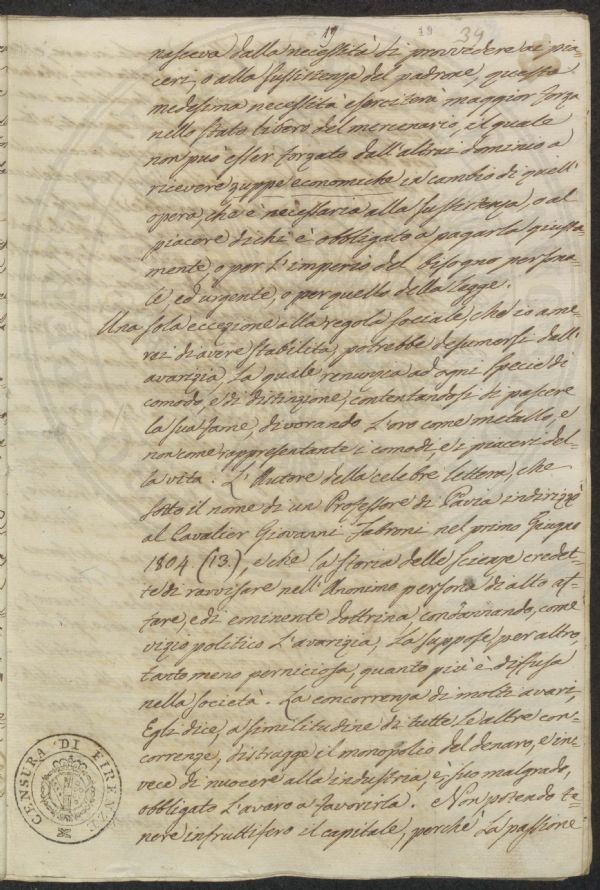 19 19 39
nasceva dalla necessità di provvedere ai pia-
ceri, o alla sussistenza del padrone, questa
medesima necessità eserciterà maggior forza
nello stato libero del mercenario, il quale
non può esser forzato dall'altrui dominio a
ricevere zuppe economiche in cambio di quell'
opera, che è necessaria alla sussistenza, o al
piacere di chi è obbligato a pagarla giusta-
mente, o per l'imperio del bisogno persona-
le ed urgente, o per quello della legge.
Una sola eccezione alla regola sociale, che io ame-
rei di avere stabilita, potrebbe desumersi dall'
avarizia, la quale renunzia ad ogni specie di
comodo, e di distinzione, contentandosi di pascere
la sua fame, divorando l'oro come metallo, e
non come rappresentante i comodi, e i piaceri del-
la vita. L'Autore della celebre lettera, che
sotto il nome di un Professore di Pavia indirizzò
al Cavalier Giovanni Fabroni nel primo Giugno
1804 (13.), e che la storia delle scienze credet-
te di ravvisare nell'Anonimo persona di alto af-
fare, e di eminente dottrina condannando, come
vizio politico l'avarizia, la suppose, per altro,
tanto meno perniciosa, quanto più è diffusa
nella società. La concorrenza di molti avari,
Egli dice, a similitudine di tutte le altre con-
correnze, distrugge il monopolio del denaro, e in-
vece di nuocere alla industria, è, suo malgrado,
obbligato l'avaro a favorirla. Non potendo te-
nere infruttifero il capitale, perchè la passione
CENSURA DI FIRENZE